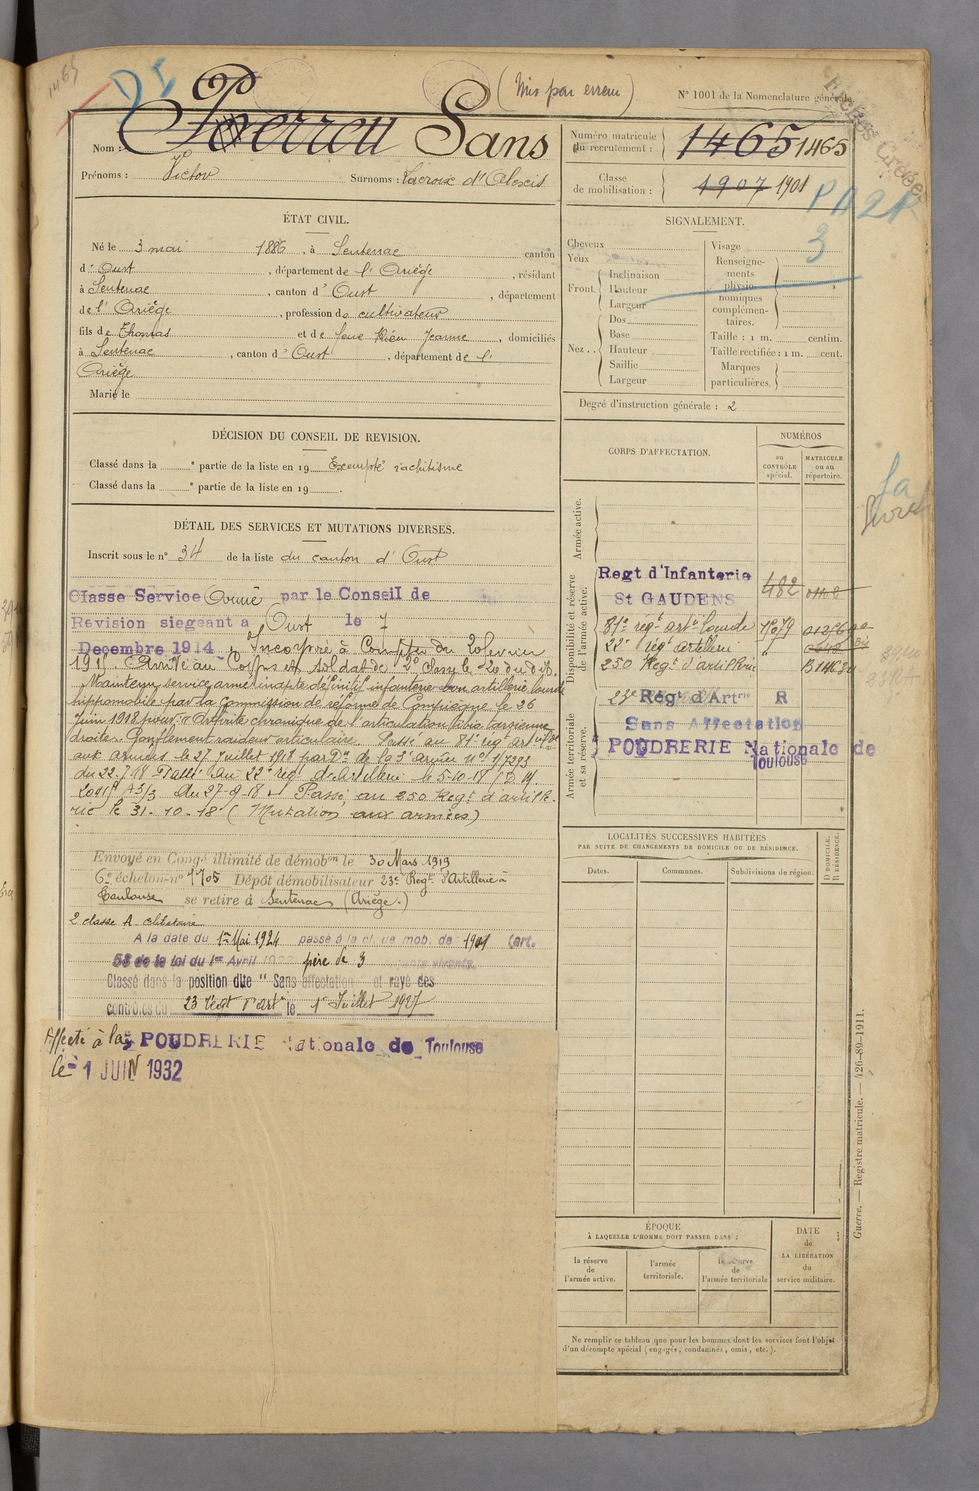 1465
(Mis par erreur)
N° 1001 de la Nomenclature générale.
Nom : Perreu Sans
Prénoms : Victor Surnoms : Lacroix d'Alexis
Numéro matricule du recrutement : 1465 1465
Classe de mobilisation : 1907 1901
Fiches Créées
ÉTAT CIVIL.
Né le 3 mai 1886, à Sentenac canton
d'Oust, département de l'Ariège, résidant
à Sentenac, canton d'Oust, département
de l'Ariège, profession de cultivateur
fils de Thomas et de feue Jeanne, domiciliés
à Sentenac, canton d'Oust, département de l'
Ariège
Marié le
SIGNALEMENT.
3
Cheveux
Yeux
Front.
Inclinaison
Hauteur
Largeur
Nez..
Dos.
Base
Hauteur
Saillie
Largeur
Visage
Renseignements physionomiques complémentaires.
Taille : 1 m. centim.
Taille rectifiée : 1 m. cent.
Marques particulières.
Degré d'instruction générale : 2
DÉCISION DU CONSEIL DE REVISION.
Classé dans la e partie de la liste en 19 Exempté rachitisme
Classé dans la e partie de la liste en 19 .
DÉTAIL DES SERVICES ET MUTATIONS DIVERSES.
Inscrit sous le n° 34 de la liste du canton d'Oust
Classe Service Armé par le Conseil de
Revision siegeant a Oust le 7
Decembre 1914. Incorporé à Compter du 20 fevrier
1915. Arrivé au Corps et soldat de 2e Classe le 20 du d.
Maintenu service armé inapte définitif infanterie bon artillerie lourde
hippomobile par la Commission de réforme de Compiègne le 26
Juin 1918 pour : "Arthrite chronique de l'articulation tibio tarsienne
droite. Gonflement raideur articulaire. Passé au 81e reg art lde
aux armées le 27 juillet 1918 par Dn de la 3e armée n° 1/7293
du 22.7.18 Passé au 22e rég d'Artillerie le 5-10-18 (D.M.
20911 A5/3 du 27-9-18. Passé au 250 Regt d'artille-
rie le 31-10-18 (Mutation aux armées)
Envoyé en Congé illimité de démobon le 30 Mars 1919
6e échelon-n° 1705 Dépôt démobilisateur 23e Regt d'Artillerie à
Toulouse se retire à Sentenac (Ariège.)
2 classe A célibataire
A la date du 1er Mai 1924 passé à la cl. de mob. de 1901 (art.
58 de la loi du 1er Avril père de 3 enfants vivants.
Classé dans la position dite "Sans affectation et rayé des
contrôles du 23 Regt d'art le 1er Juillet 1927
Affecté à la POUDRERIE Nationale de Toulouse
le 1 JUIN 1932
CORPS D'AFFECTATION.
NUMÉROS
au CONTRÔLE spécial.
MATRICULE ou au répertoire.
Armée active.
Disponibilité et réserve de l'armée active.
Regt d'Infanterie
St GAUDENS 482
81e regt artie lourde
22e rég artillerie
250 Regt d'artillerie
Armée territoriale et sa réserve.
23e Régt d'Artrie R
Sans Affectation
POUDRERIE Nationale de
Toulouse
LOCALITÉS SUCCESSIVES HABITÉES
PAR SUITE DE CHANGEMENTS DE DOMICILE OU DE RÉSIDENCE.
Dates.
Communes.
Subdivisions de région.
D DOMICILE.
R RÉSIDENCE.
ÉPOQUE
À LAQUELLE L'HOMME DOIT PASSER DANS :
la réserve de l'armée active.
l'armée territoriale.
la réserve de l'armée territoriale
DATE de LA LIBÉRATION du service militaire.
Ne remplir ce tableau que pour les hommes dont les services font l'objet
d'un décompte spécial (engagés, condamnés, omis, etc.).
Guerre. — Registre matricule. — 426-89-1911.